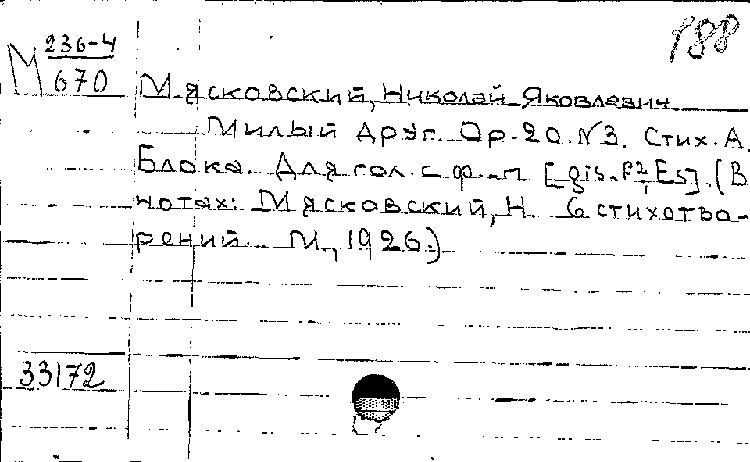 М 236-4
670
188
Мясковский, Николай Яковлевич
Милый друг. Op. 20. N3. Стих. А.
Блока. Для гол. с ф.-п. [gis. f2, Es]. (В
нотах: Мясковский, Н. 6 стихотво-
рений. М., 1926.)
33172